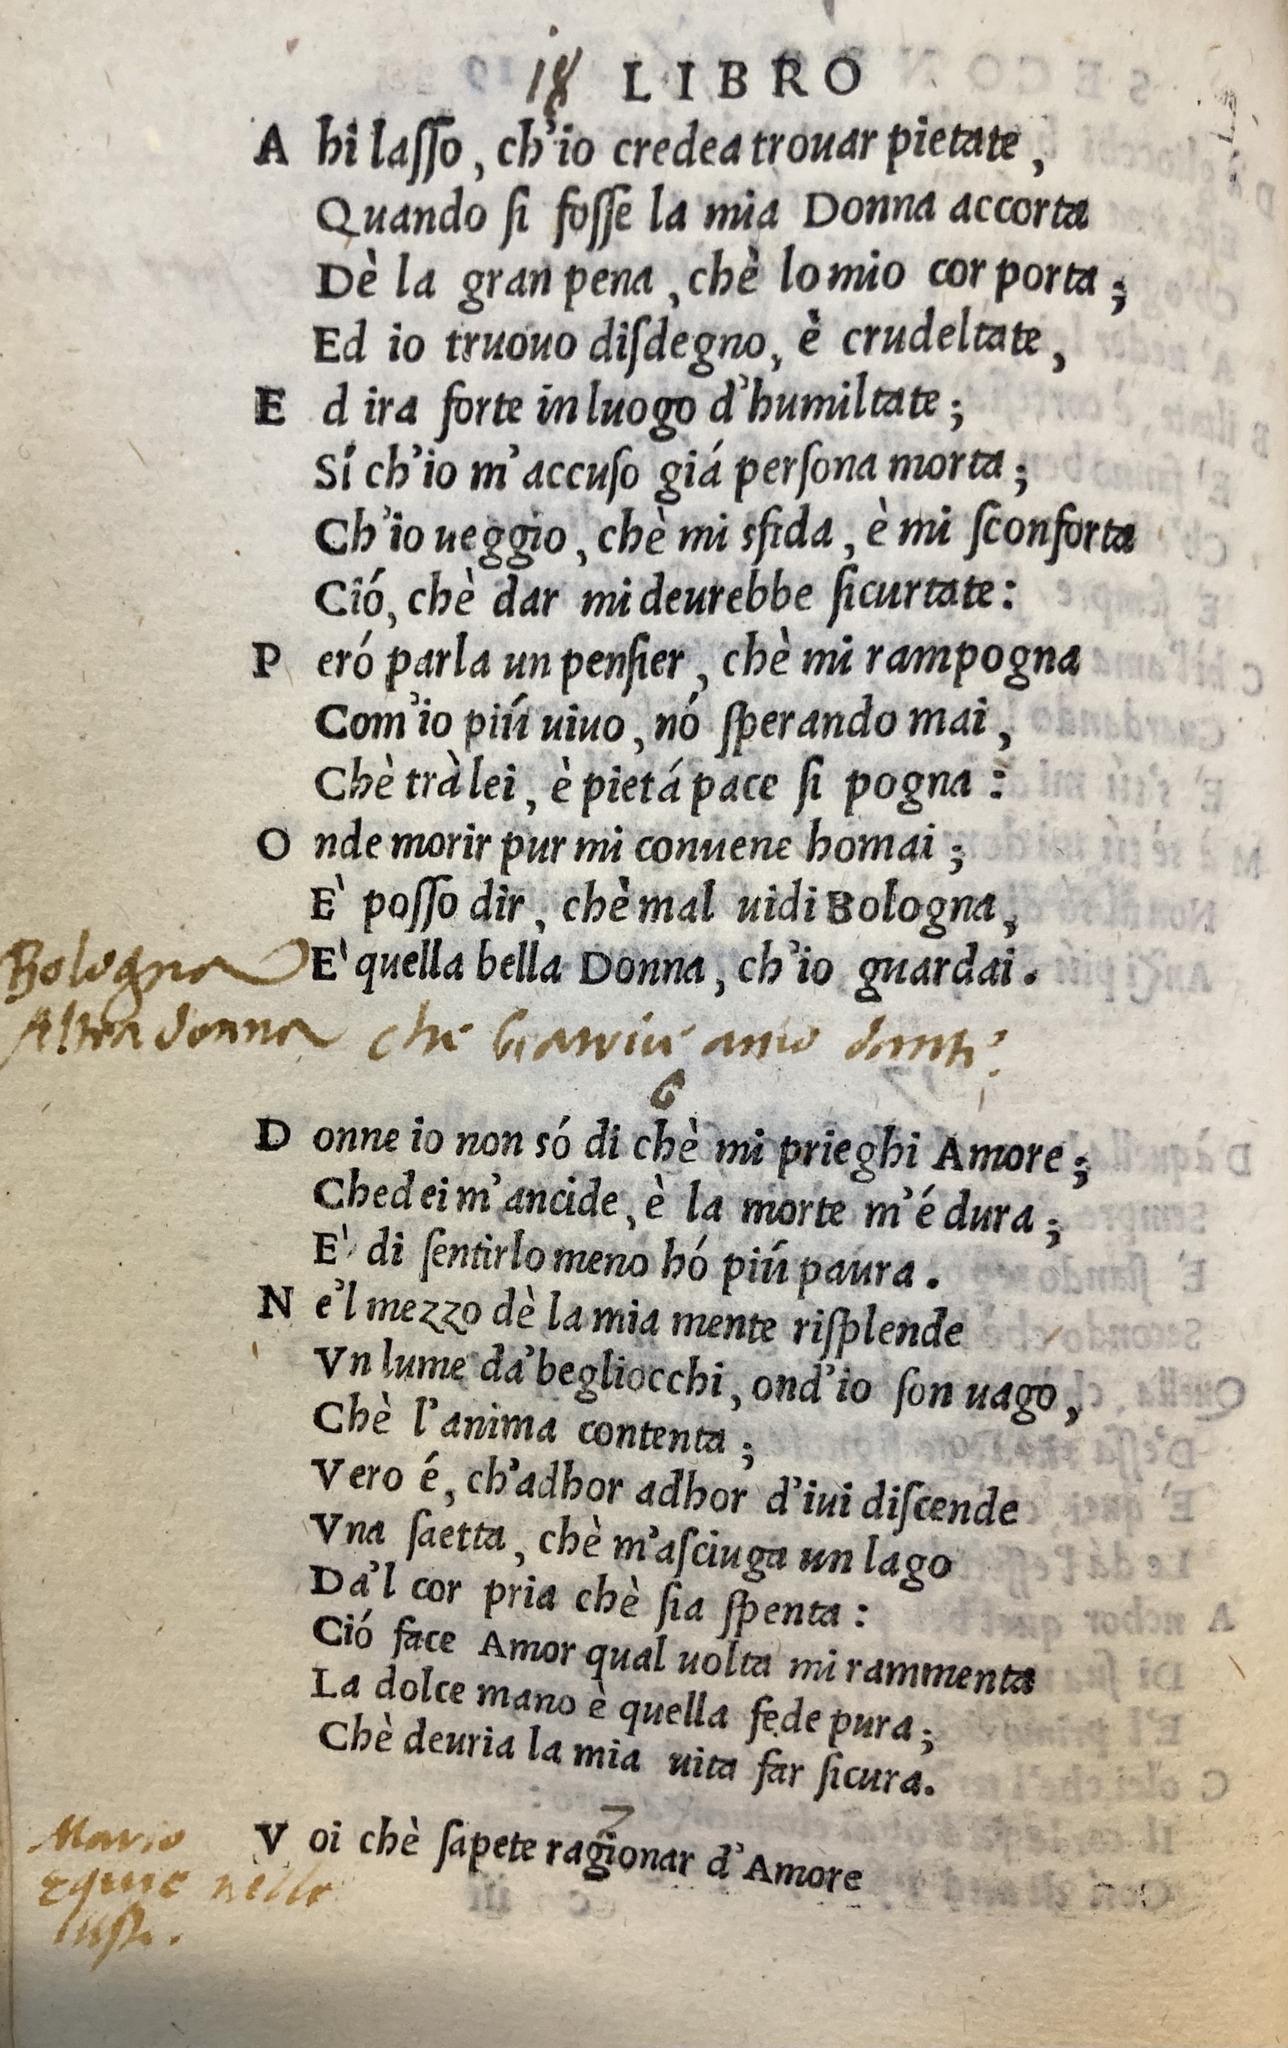 18 LIBRO
A hi laſſo, ch'io credea trouar pietate,
Quando ſi foſſe la mia Donna accorta
Dè la gran pena, chè lo mio cor porta;
Ed io truouo diſdegno, è crudeltate,
E d ira forte in luogo d'humiltate;
Sí ch'io m'accuſo giá perſona morta;
Ch'io ueggio, chè mi sfida, è mi ſconforta
Ció, chè dar mi deurebbe ſicurtate:
P eró parla un penſier, chè mi rampogna
Com'io piú uiuo, nó ſperando mai,
Chè trà lei, è pietá pace ſi pogna:
O nde morir pur mi conuene homai;
E' poſſo dir, chè mal uidi Bologna,
E' quella bella Donna, ch'io guardai.
Bologna
Altra donna che amo
6
D onne io non só di chè mi prieghi Amore;
Ched ei m'ancide, è la morte m'é dura;
E' di ſentirlo meno hó piú paura.
N e'l mezzo dè la mia mente riſplende
Vn lume da' begliocchi, ond'io ſon uago,
Chè l'anima contenta;
Vero é, ch'adhor adhor d'iui diſcende
Vna ſaetta, chè m'aſciuga un lago
Da'l cor pria chè ſia ſpenta:
Ció face Amor qual uolta mi rammenta
La dolce mano è quella fede pura;
Chè deuria la mia uita far ſicura.
7
V oi chè ſapete ragionar d'Amore
Mario